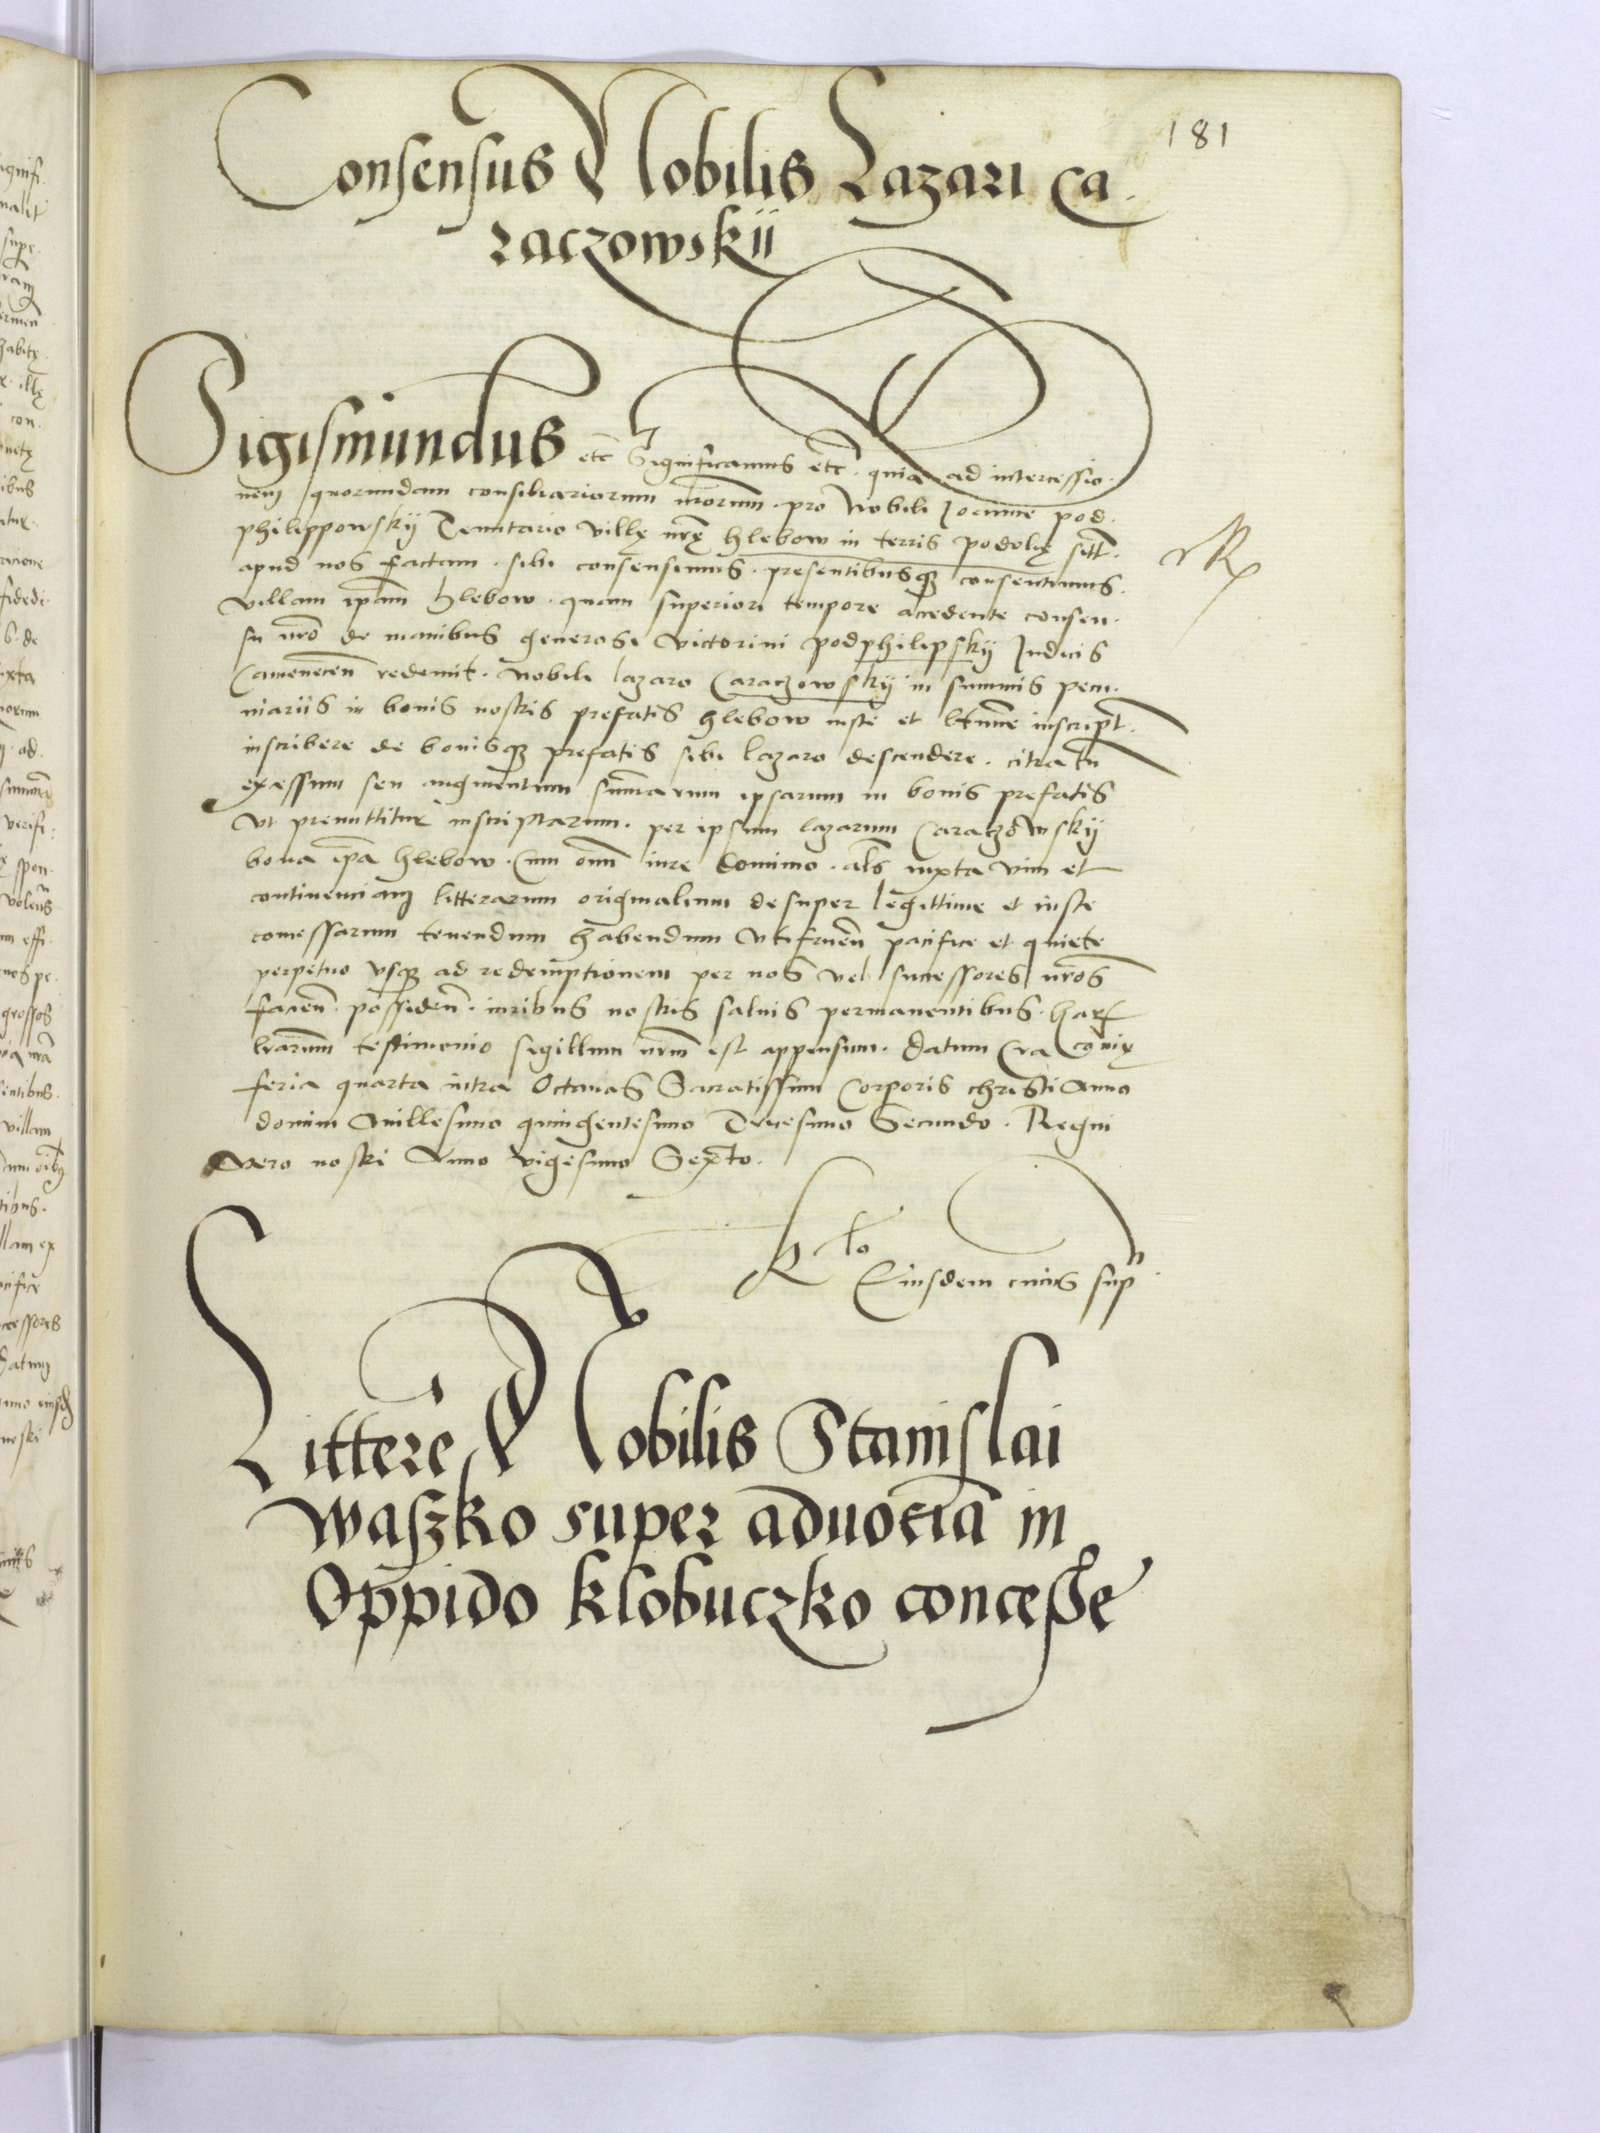 181
Consensus Nobilis Lazari Ca.
raczowskii
Sigismundus etc Significamus etc. quia ad intercessio.
nem quorundam consiliariorum nrorum pro Nobili Iocume pod.
philippowskij Tenutario villę nrę hlebow in terris podolię sitt.
apud nos factam. sibi consensimus. presentibusque consentimus.
villam ipam hlebow. quam superiori tempore accedente consen.
su nro de manibus generosi victorini podphilipskij Iudicis
Camenecen redemit. Nobili lazaro Caraczowskij in summis pecu.
niariis in bonis nostris prefatis hlebow iuste et lttime inscript.
inscribere de bonisque prefatis sibi lazaro descendere. citra tn
excessum seu augmentum summarum ipsarum in bonis prefatis
vt premittitur inscriptarum. per ipsum lazarum Caraczowskij
bona ipa hlebow. Cum omi iure dominio. als iuxta vim et
continenciam litterarum originalium desuper legittime et iuste
concessarum tenendum habendum vtifruen pacifice et quiete
perpetuo vsque ad redemptionem per nos vel successores nros
facien possiden. iuribus nostris saluis permanentibus. Harum
lrarum testimonio sigillum nrum est appensum. Datum Cracouię
feria quarta intra Octauas Sacratissimi Corporis christi Anno
domini Millesimo quingentesimo Tricesimo Secundo. Regni
vero nostri Anno vigesimo Sexto.
Rlo
Eiusdem cuius sup
Littere Nobilis Stanislai
Waszko super aduocia in
Oppido Klobuczko concesse